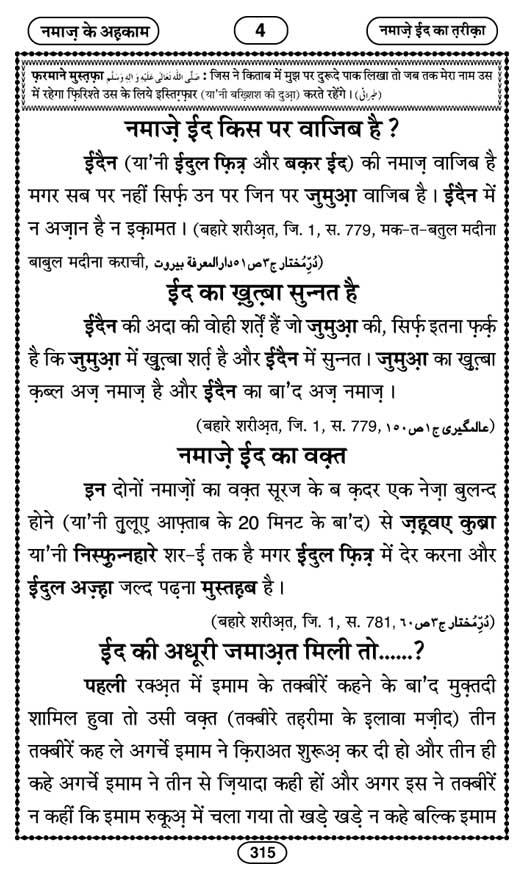 नमाज़ के अहकाम
4
नमाज़े ईद का तरीक़ा
फ़रमाने मुस्तफ़ा صَلَّى اللہُ تَعَالٰی عَلَیْہِ وَاٰلِہٖ وَسَلَّم : जिस ने किताब में मुझ पर दुरूदे पाक लिखा तो जब तक मेरा नाम उस
में रहेगा फ़िरिश्ते उस के लिये इस्तिग़्फ़ार (या'नी बख़्शिश की दुआ़) करते रहेंगे। (طبرانی)
नमाज़े ईद किस पर वाजिब है ?
ईदैन (या'नी ईदुल फ़ित्र और बक़र ईद) की नमाज़ वाजिब है
मगर सब पर नहीं सिर्फ़ उन पर जिन पर जुमुआ़ वाजिब है। ईदैन में
न अज़ान है न इक़ामत। (बहारे शरीअ़त, जि. 1, स. 779, मक-त-बतुल मदीना
बाबुल मदीना कराची, دُرِّمُختار ج۳ص۵۱دارالمعرفۃ بیروت)
ईद का ख़ुत़्बा सुन्नत है
ईदैन की अदा की वोही शर्तें हैं जो जुमुआ़ की, सिर्फ़ इतना फ़र्क़
है कि जुमुआ़ में ख़ुत़्बा शर्त़ है और ईदैन में सुन्नत। जुमुआ़ का ख़ुत़्बा
क़ब्ल अज़ नमाज़ है और ईदैन का बा'द अज़ नमाज़।
(बहारे शरीअ़त, जि. 1, स. 779, عالمگیری ج۱ص۱۵۰)
नमाज़े ईद का वक़्त
इन दोनों नमाज़ों का वक़्त सूरज के ब क़दर एक नेज़ा बुलन्द
होने (या'नी त़ुलूए आफ़्ताब के 20 मिनट के बा'द) से ज़ह़्वए कुब्रा
या'नी निस्फ़ुन्नहारे शर-ई तक है मगर ईदुल फ़ित्र में देर करना और
ईदुल अज़्ह़ा जल्द पढ़ना मुस्तह़ब है।
(बहारे शरीअ़त, जि. 1, स. 781, دُرِّمُختار ج۳ص۶۰)
ईद की अधूरी जमाअ़त मिली तो......?
पहली रक्अ़त में इमाम के तक्बीरें कहने के बा'द मुक़्तदी
शामिल हुवा तो उसी वक़्त (तक्बीरे तह़रीमा के इलावा मज़ीद) तीन
तक्बीरें कह ले अगर्चे इमाम ने क़िराअत शुरूअ़ कर दी हो और तीन ही
कहे अगर्चे इमाम ने तीन से ज़ियादा कही हों और अगर इस ने तक्बीरें
न कहीं कि इमाम रुकूअ़ में चला गया तो खड़े खड़े न कहे बल्कि इमाम
315